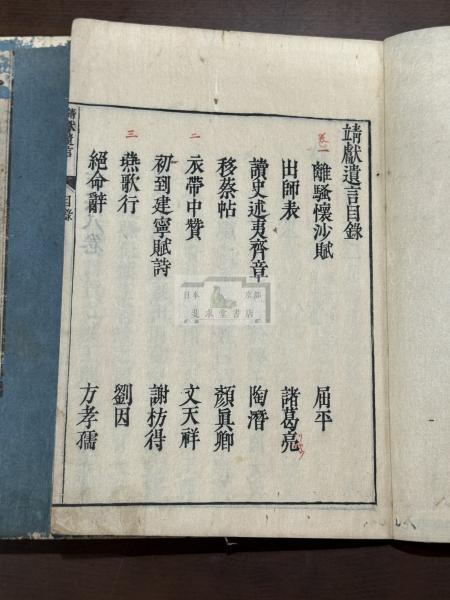 靖獻遺言目錄
卷一
離騷懷沙賦 屈平
出師表 諸葛亮
讀史述夷齊章 陶潛
移蔡帖 顏眞卿
二
衣帶中贊 文天祥
初到建寧賦詩 謝枋得
三
燕歌行 劉因
絕命辭 方孝孺
靖獻遺言 目錄
日本 京都
斐求堂書店